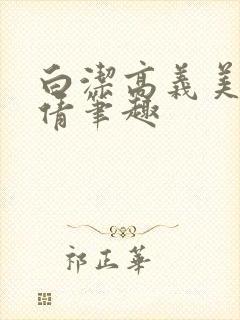 白潔高義美
倩筆趣
祁正華